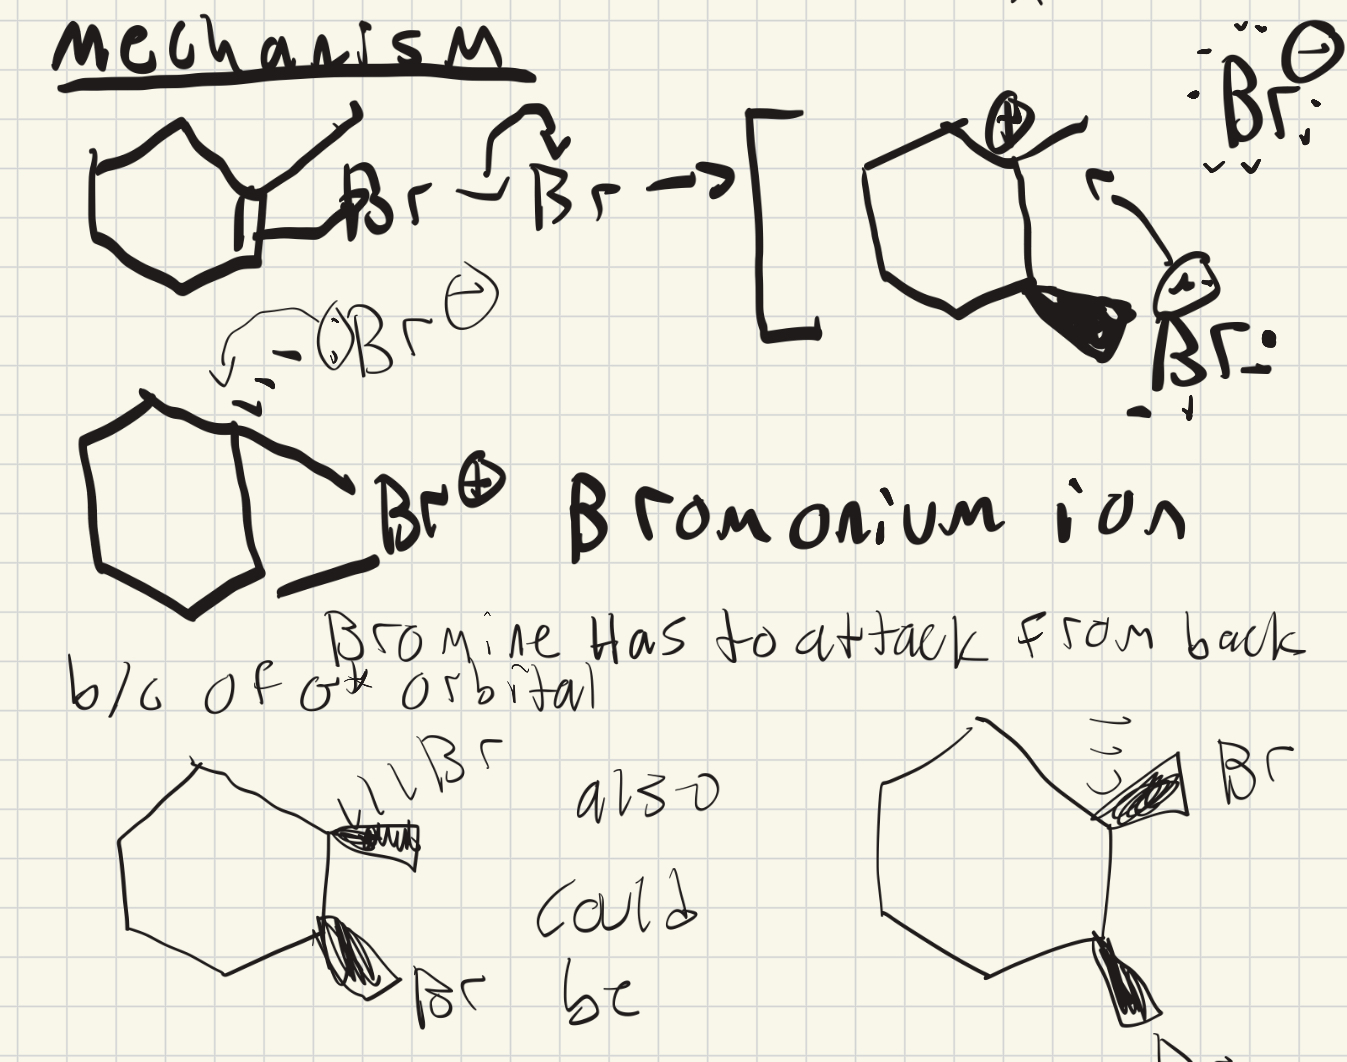 Mechanism
Br - Br →
Br:
Br
Br
Br Bromonium ion
Bromine Has to attack from back
b/c of σ* orbital
Br
also
could
be
Br
Br